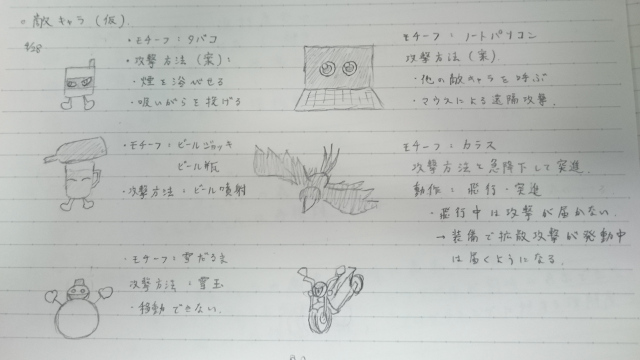 ○敵キャラ(仮)
4/28
・モチーフ:タバコ
・攻撃方法(案):
・煙を浴びせる
・吸いがらを投げる
モチーフ:ノートパソコン
攻撃方法(案)
・他の敵キャラを呼ぶ
・マウスによる遠隔攻撃.
・モチーフ:ビールジョッキ
ビール瓶
・攻撃方法:ビール噴射
モチーフ:カラス
攻撃方法:急降下して突進
動作:飛行・突進
・飛行中は攻撃が届かない.
→装備で拡散攻撃が発動中
は届くようになる.
・モチーフ:雪だるま
攻撃方法:雪玉
・移動できない.